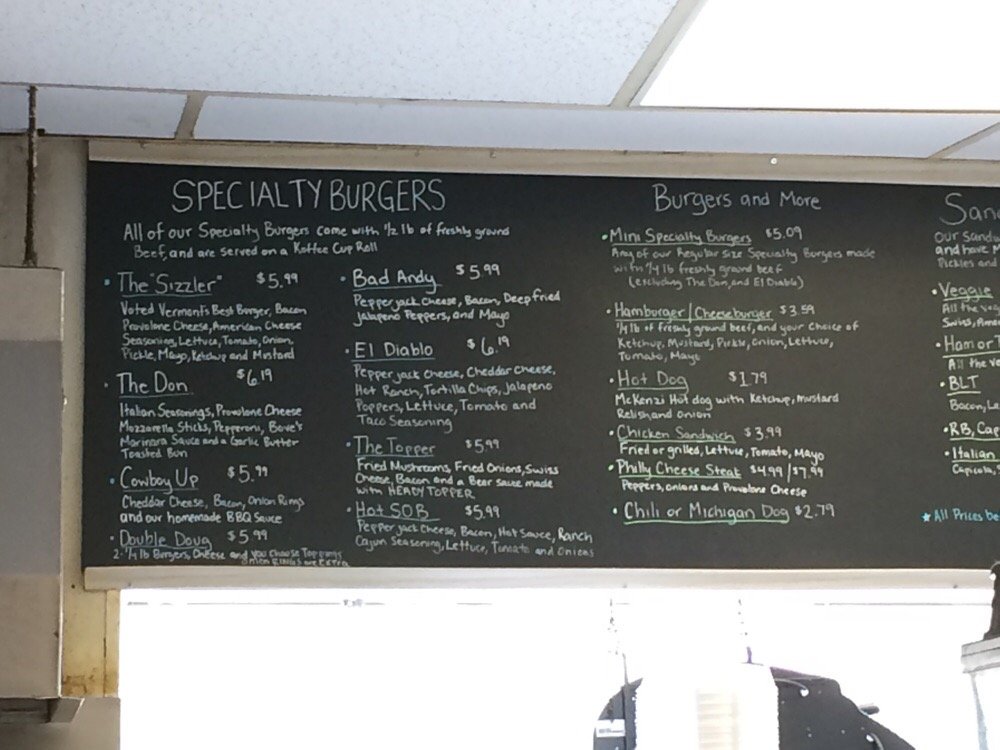 SPECIALTY BURGERS
All of our Specialty Burgers come with 1/2 lb of freshly ground
Beef, and are served on a Koffee Cup Roll
The "Sizzler" $5.99
Voted Vermont's Best Burger, Bacon
Provolone Cheese, American Cheese
Seasoning, Lettuce, Tomato, Onion,
Pickle, Mayo, Ketchup and Mustard
The Don $6.19
Italian Seasonings, Provolone Cheese
Mozzarella Sticks, Pepperoni, Bove's
Marinara Sauce and a Garlic Butter
Toasted Bun
Cowboy Up $5.99
Cheddar Cheese, Bacon, Onion Rings
and our homemade BBQ Sauce
Double Doug $5.99
2-1/4 lb Burgers, Cheese and you choose Toppings
onion Rings are Extra
Bad Andy $5.99
Pepperjack Cheese, Bacon, Deep fried
Jalapeno Peppers, and Mayo
El Diablo $6.19
Pepper jack Cheese, Cheddar Cheese,
Hot Ranch, Tortilla Chips, Jalapeno
Poppers, Lettuce, Tomato and
Taco Seasoning
The Topper $5.99
Fried Mushrooms, Fried Onions, Swiss
Cheese, Bacon and a Beer sauce made
with HEADY TOPPER
Hot SOB $5.99
Pepper jack Cheese, Bacon, Hot Sauce, Ranch
Cajun Seasoning, Lettuce, Tomato and Onions
Burgers and More
Mini Specialty Burgers $5.09
Any of our Regular Size Specialty Burgers made
with 1/4 lb freshly ground beef
(excluding The Don, and El Diablo)
Hamburger/Cheeseburger $3.59
1/4 lb of freshly ground beef, and your choice of
Ketchup, Mustard, Pickle, Onion, Lettuce,
Tomato, Mayo
Hot Dog $1.79
McKenzi Hot dog with Ketchup, mustard
Relish, and onion
Chicken Sandwich $3.99
Fried or grilled, Lettuce, Tomato, Mayo
Philly Cheese Steak $4.99/$7.99
Peppers, onions and Provolone Cheese
Chili or Michigan Dog $2.79
San
Our sand
and have
Pickles and
Veggie
All the
Swiss,
Ham or T
All the ve
BLT
Bacon, L
RB, Cap
Italian
Capicola,
★ All Prices be